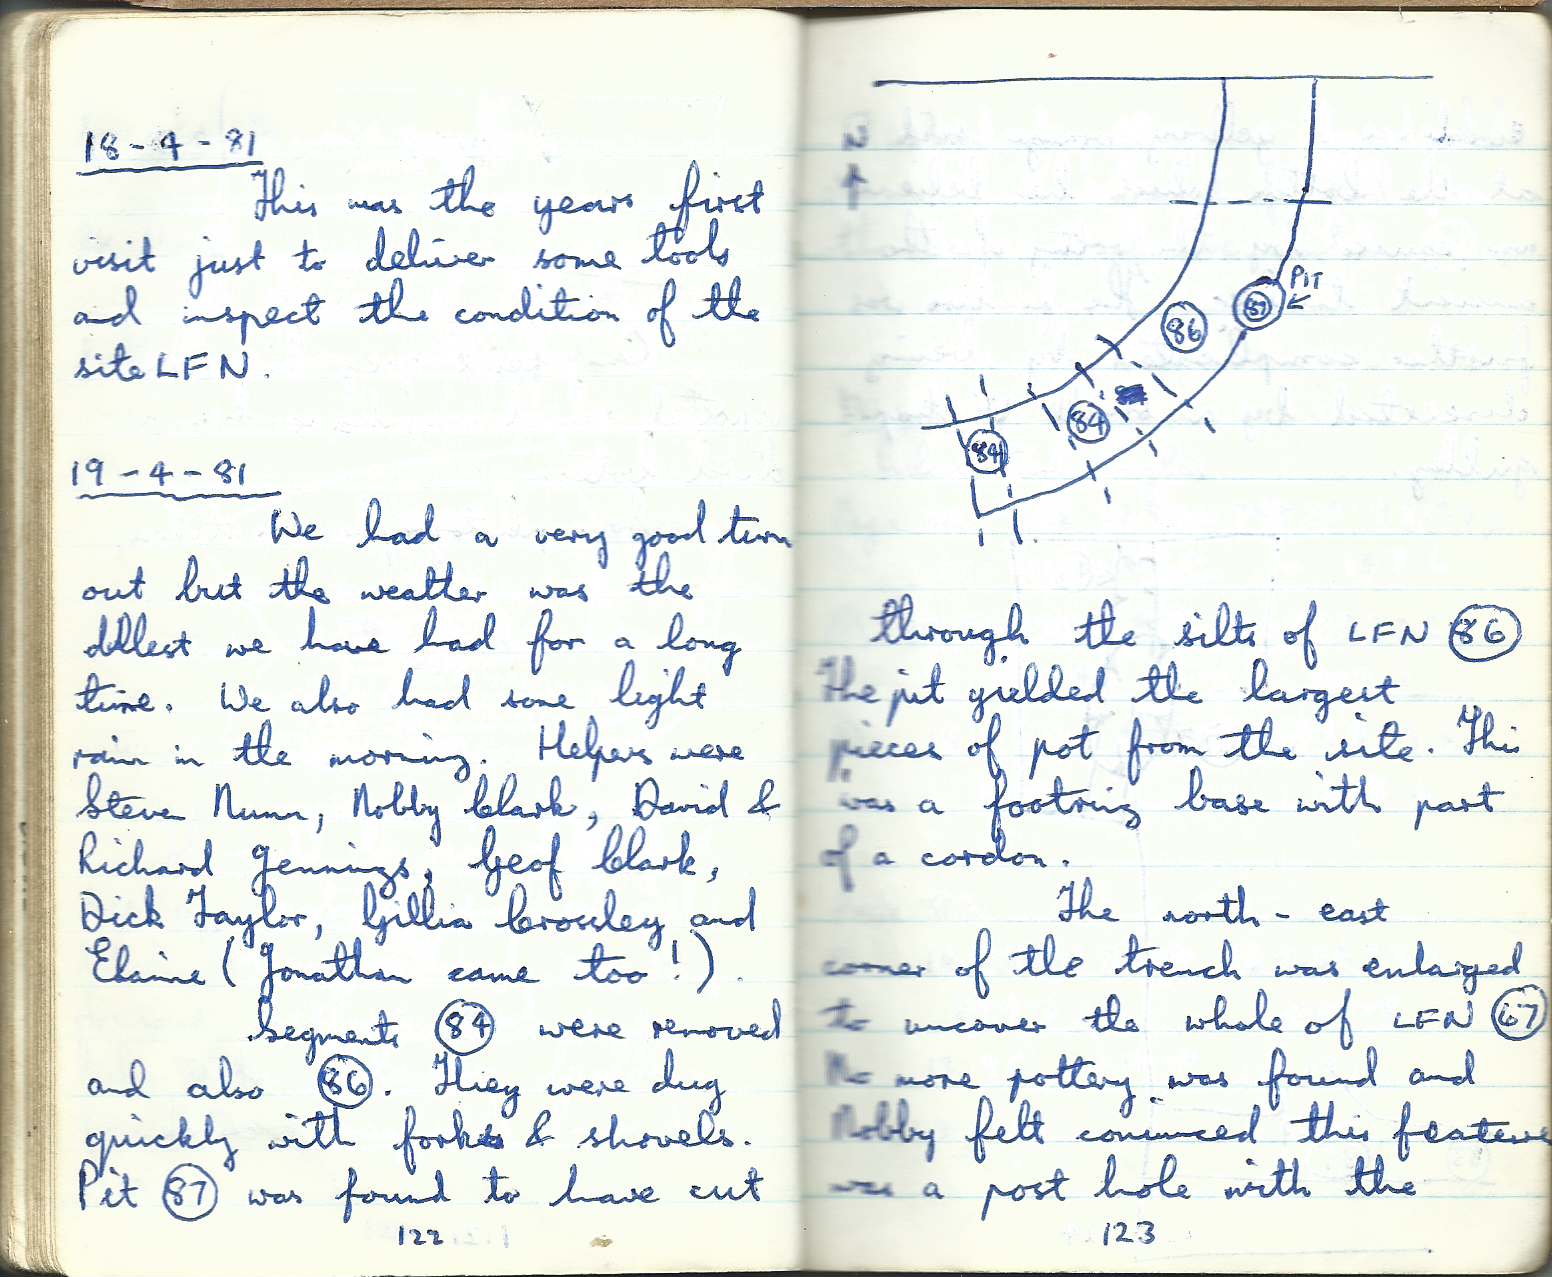 18-4-81
This was the years first
visit just to deliver some tools
and inspect the condition of the
site LFN.
19-4-81
We had a very good turn
out but the weather was the
dllest we have had for a long
time. We also had some light
rain in the morning. Helpers were
Steve Nunn, Nobby Clark, David &
Richard Jennings, Geof Clark,
Dick Taylor, Gillia Crossley and
Elaine (Jonathan came too!).
Segments 84 were removed
and also 86. They were dug
quickly with forks & shovels.
Pit 87 was found to have cut
122
N
PIT
87
86
84
84
through the silts of LFN 86
The pit yielded the largest
pieces of pot from the site. This
was a footring base with part
of a cordon.
The north-east
corner of the trench was enlarged
to uncover the whole of LFN 67
No more pottery was found and
Nobby felt convinced this feature
was a post hole with the
123